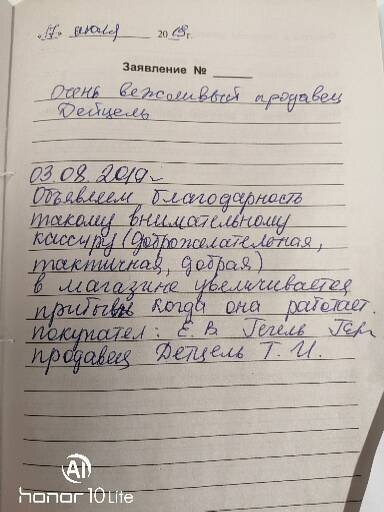 «17» июля 2019 г.
Заявление №
очень вежливый продавец
Детцель
03.08.2019 г
Объявляем благодарность
такому внимательному
кассиру (доброжелательная,
тактичная, добрая)
в магазине увеличивается
прибыль когда она работает.
покупател: Е. В. Гегель
продавец Детцель Т. И.
AI
honor 10 Lite